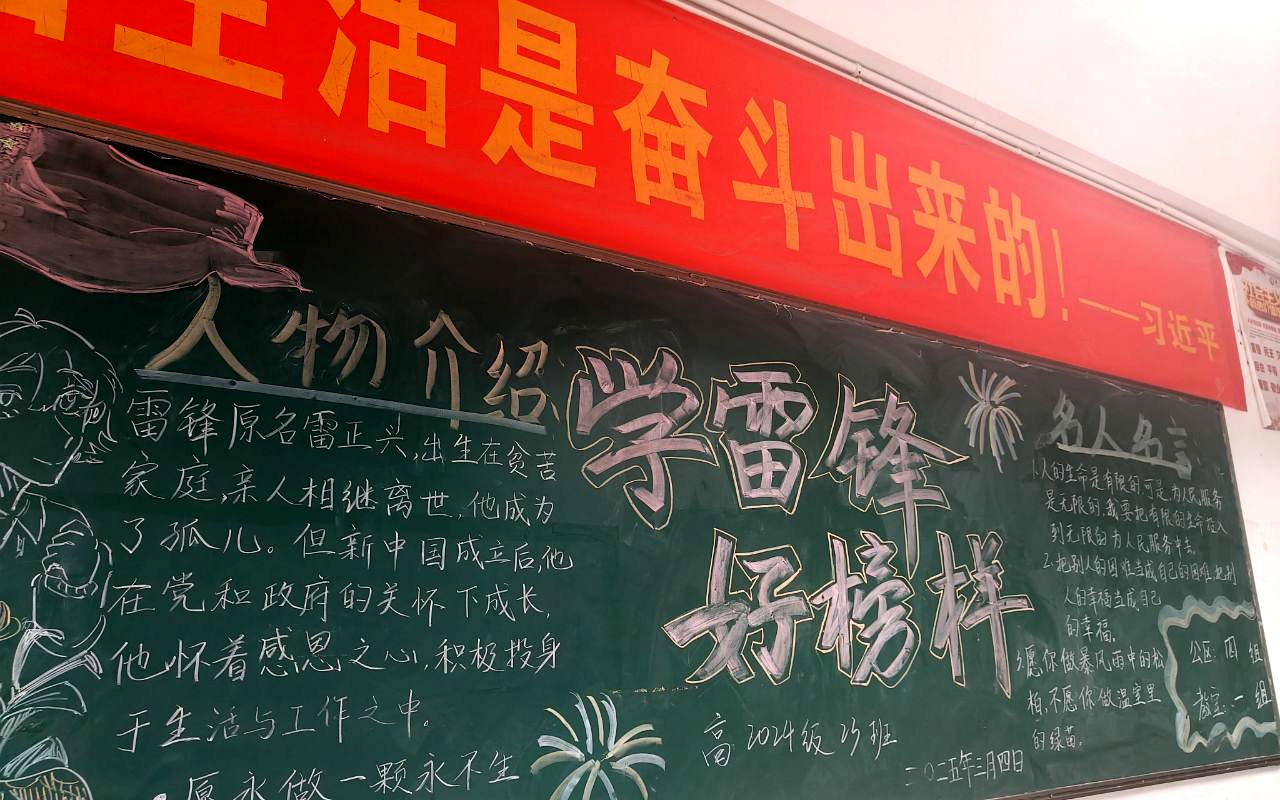 生活是奋斗出来的!
——习近平
人物介绍
雷锋原名雷正兴,出生在贫苦
家庭,亲人相继离世,他成为
了孤儿。但新中国成立后,他
在党和政府的关怀下成长,
他怀着感恩之心,积极投身
于生活与工作之中。
愿永做一颗永不生
学雷锋
好榜样
高2024级25班
二〇二五年三月四日
名人名言
1.人的生命是有限的,可是,为人民服务
是无限的,我要把有限的生命投入
到无限的为人民服务中去。
2.把别人的困难当成自己的困难,把别
人的幸福当成自己
的幸福。
3.愿你做暴风雨中的松
柏,不愿你做温室里
的绿苗。
公区:四组
教室:一组